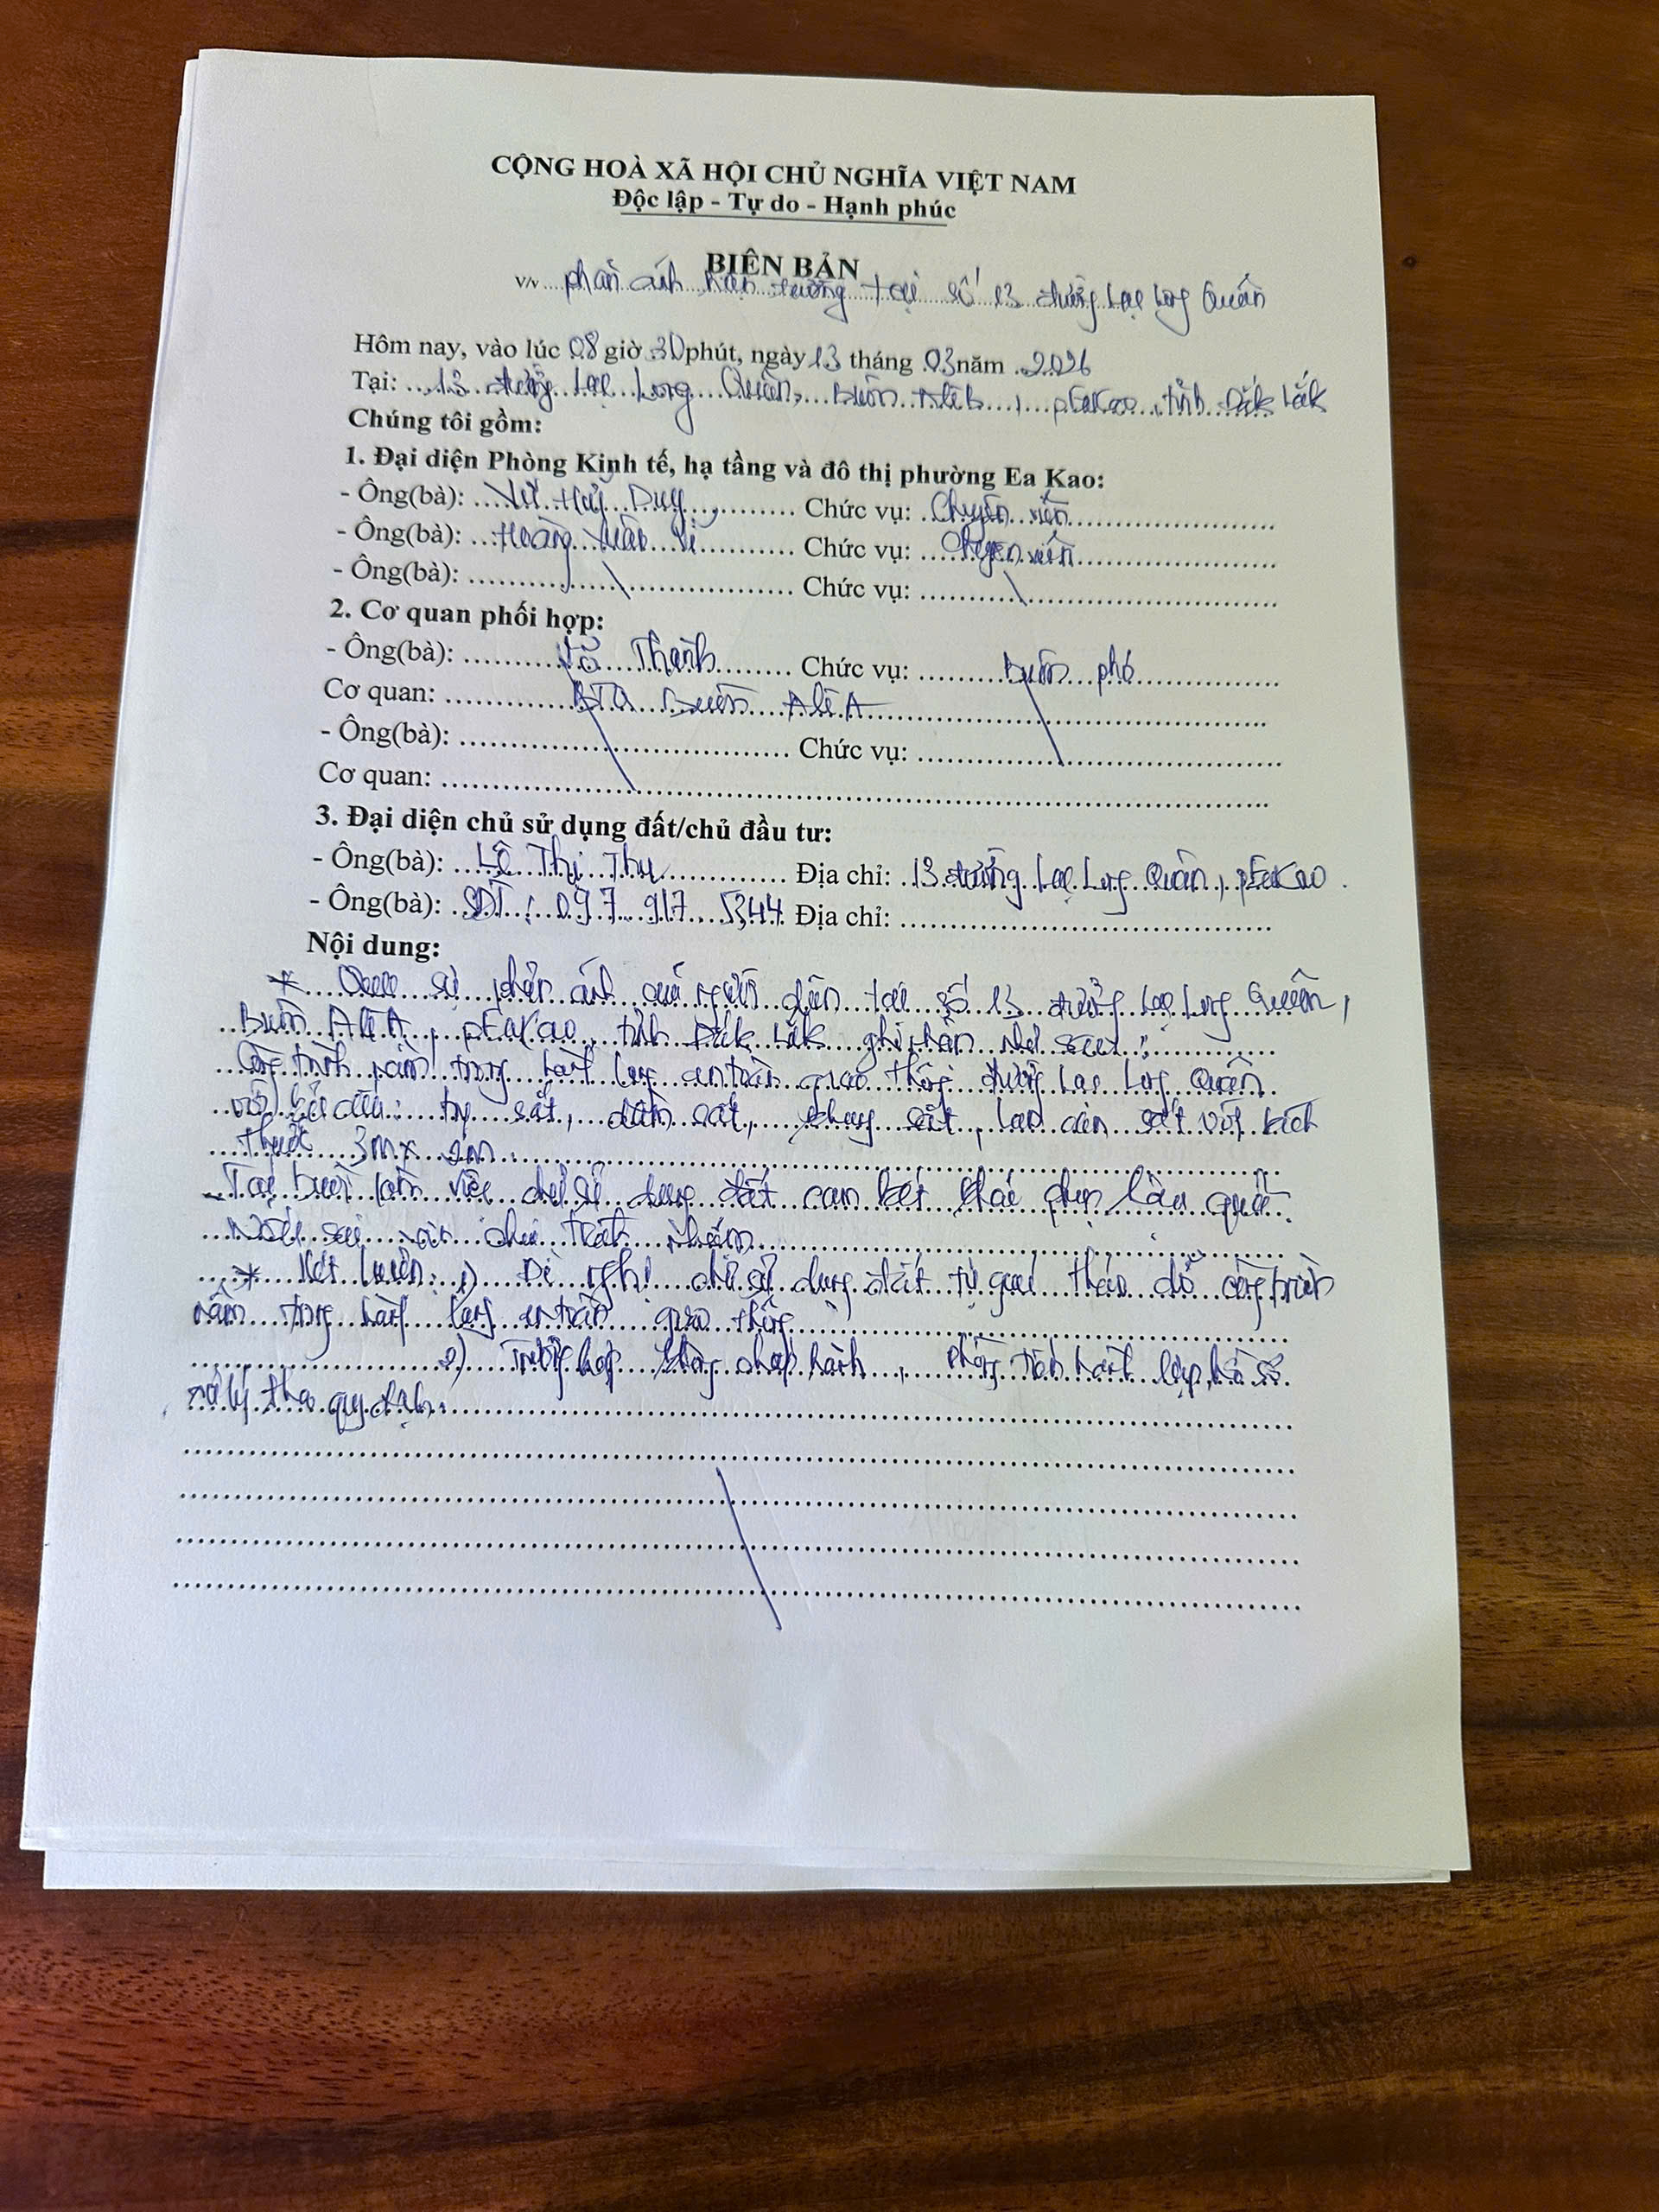 CỘNG HOÀ XÃ HỘI CHỦ NGHĨA VIỆT NAM
Độc lập - Tự do - Hạnh phúc
BIÊN BẢN
V/v phản ánh hiện trường tại số 13 đường Lạc Long Quân
Hôm nay, vào lúc 08 giờ 30 phút, ngày 13 tháng 03 năm 2026
Tại: 13 đường Lạc Long Quân, Buôn Alê, pEaKao, tỉnh Đắk Lắk
Chúng tôi gồm:
1. Đại diện Phòng Kinh tế, hạ tầng và đô thị phường Ea Kao:
- Ông(bà): Duy Chức vụ: Chuyên viên
- Ông(bà): Hoàng Xuân Chức vụ: Chuyên viên
- Ông(bà): Chức vụ:
2. Cơ quan phối hợp:
- Ông(bà): Thanh Chức vụ: Buôn phó
Cơ quan: Buôn Alê A
- Ông(bà): Chức vụ:
Cơ quan:
3. Đại diện chủ sử dụng đất/chủ đầu tư:
- Ông(bà): Lê Thị Thu Địa chỉ: 13 đường Lạc Long Quân, pEaKao.
- Ông(bà): SĐT: 097 917 5344 Địa chỉ:
Nội dung:
* Qua sự phản ánh của người dân tại số 13 đường Lạc Long Quân,
Buôn Alê A, pEaKao, tỉnh Đắk Lắk ghi nhận như sau:
Công trình nằm trong hành lang an toàn giao thông đường Lạc Long Quân
với kết cấu: trụ sắt, dàn sắt, khung sắt, lan can sắt với kích
thước 3m x 2m
- Tại buổi làm việc chủ sử dụng đất cam kết khai đúng hậu quả
nếu sai xin chịu trách nhiệm
* Kết luận: 1) Đề nghị chủ sử dụng đất tự giác tháo dỡ công trình
nằm trong hành lang an toàn giao thông
2) Trường hợp không chấp hành, phòng tiến hành lập hồ sơ
xử lý theo quy định.